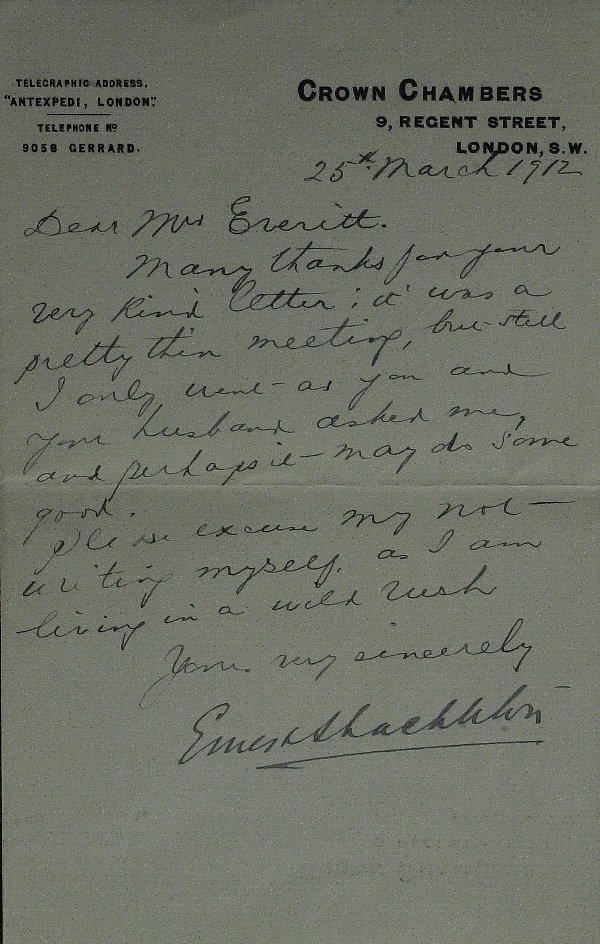 TELEGRAPHIC ADDRESS,
"ANTEXPEDI, LONDON".
TELEPHONE No
9058 GERRARD.
CROWN CHAMBERS
9, REGENT STREET,
LONDON, S.W.
25th March 1912
Dear Mrs Everitt.
Many thanks for your
very kind letter; it was a
pretty thin meeting, but still
I only went as you and
your husband asked me,
and perhaps it may do some
good.
Please excuse my not
writing myself, as I am
living in a wild rush
Yours very sincerely
Ernest Shackleton